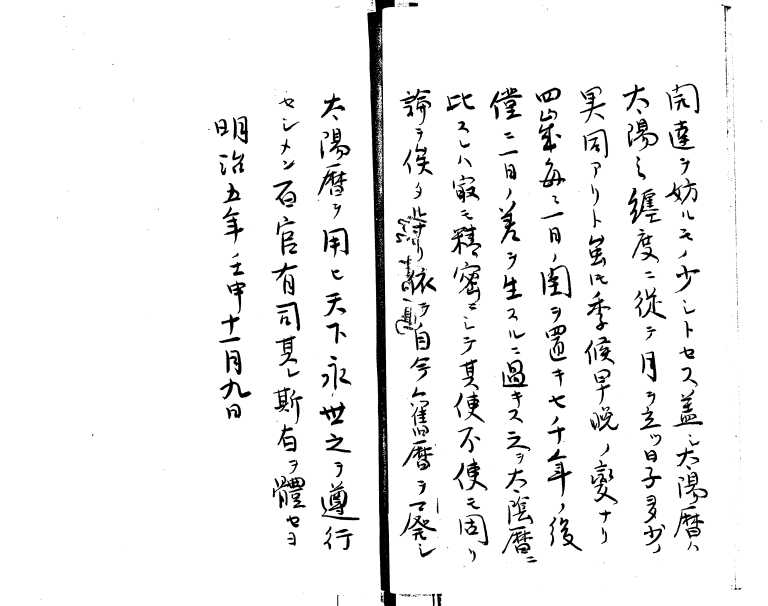 開達ヲ妨ルモノ少シトセス蓋シ太陽暦ハ
太陽ノ纏度ニ従テ月ヲ立ツ日子多少ノ
異同アリト雖モ季候早晩ノ變ナリ
四歳毎ニ一日ノ閏ヲ置キ七千年ノ後
僅ニ一日ノ差ヲ生スルニ過キス之ヲ太陰暦ニ
比スレハ最モ精密ニシテ其便不便モ固リ
論ヲ俟タ 依テ自今舊暦ヲ廢シ
太陽暦ヲ用ヒ天下永世之ヲ遵行
セシメン百官有司其レ斯旨ヲ體セヨ
明治五年壬申十一月九日